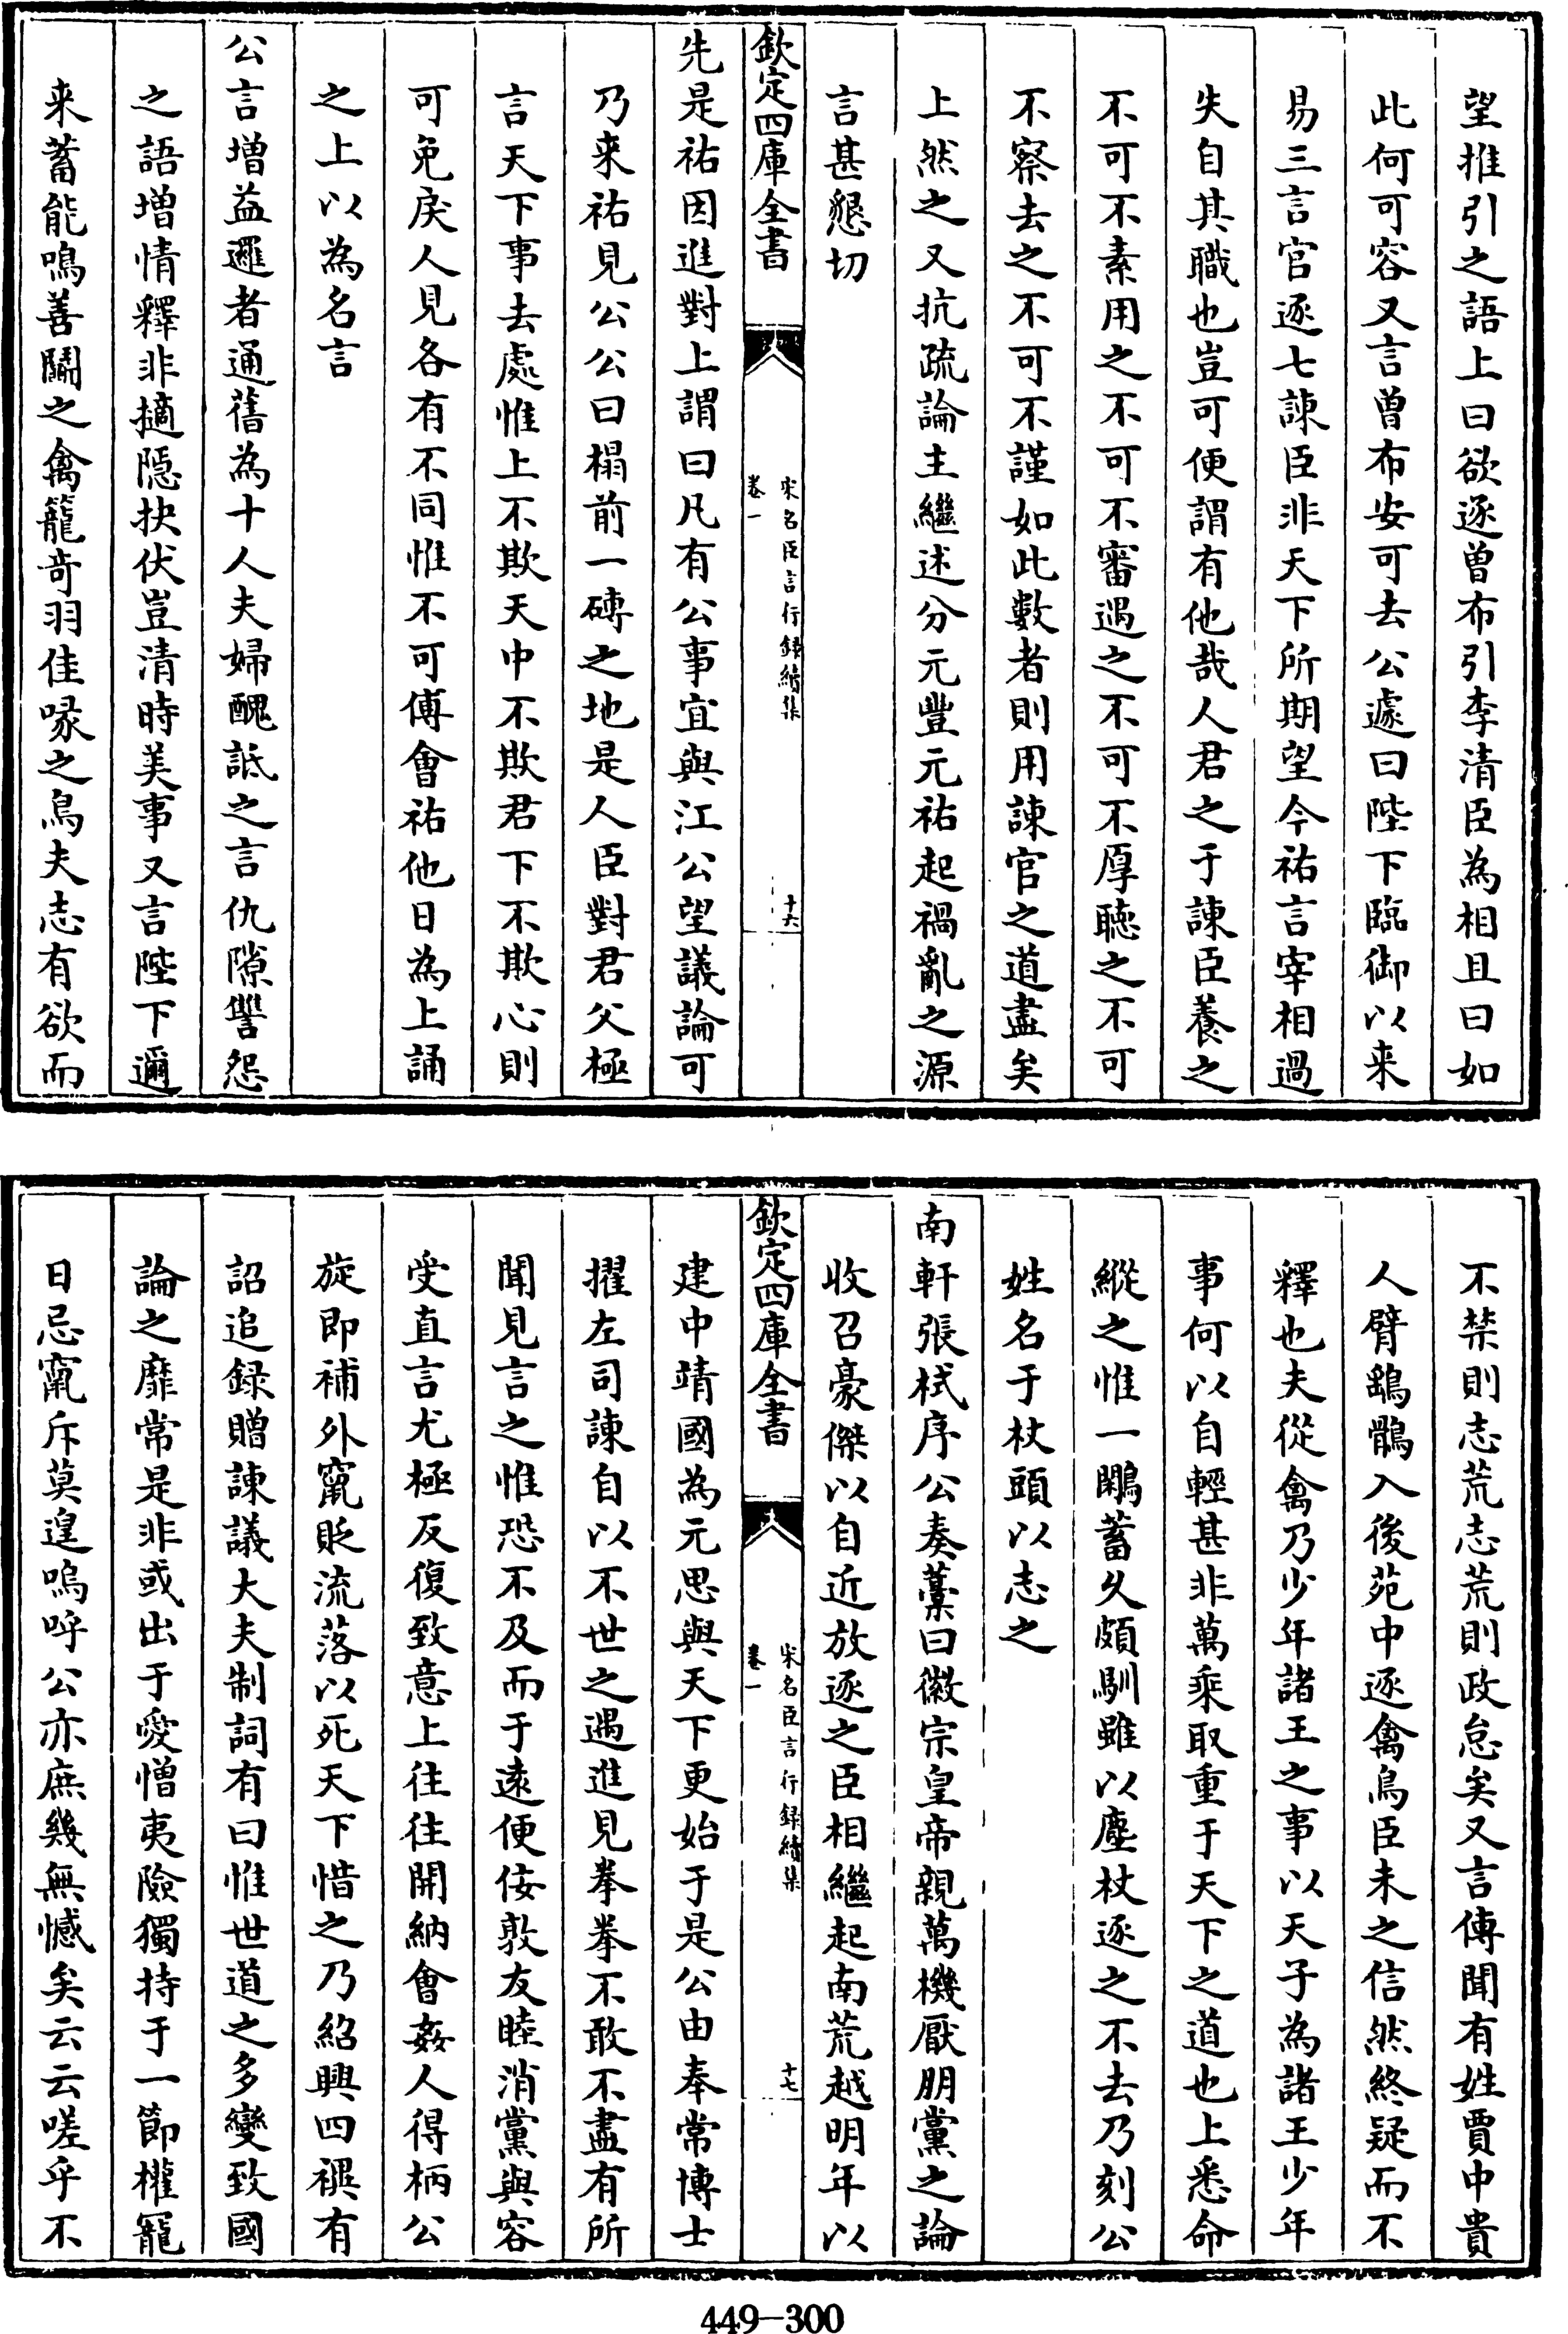 望推引之語上曰欲逐曾布引李清臣為相且曰如
此何可容又言曾布安可去公遽曰陛下臨御以来
易三言官逐七諫臣非天下所期望今祐言宰相過
失自其職也豈可便謂有他哉人君之于諫臣養之
不可不素用之不可不審遇之不可不厚聽之不可
不察去之不可不謹如此數者則用諫官之道盡矣
上然之又抗疏論主繼述分元豐元祐起禍亂之源
言甚懇切
欽定四庫全書
宋名臣言行録續集
卷一
十六
先是祐因進對上謂曰凡有公事宜與江公望議論可
乃来祐見公公曰榻前一磚之地是人臣對君父極
言天下事去處惟上不欺天中不欺君下不欺心則
可免戾人見各有不同惟不可傅會祐他日為上誦
之上以為名言
公言增益邏者通舊為十人夫婦醜詆之言仇隙讐怨
之語增情釋非擿隠抉伏豈清時美事又言陛下邇
来蓄能鳴善鬭之禽籠竒羽佳喙之鳥夫志有欲而
不禁則志荒志荒則政怠矣又言傳聞有姓賈中貴
人臂鷂鶻入後苑中逐禽鳥臣未之信然終疑而不
釋也夫從禽乃少年諸王之事以天子為諸王少年
事何以自輕甚非萬乘取重于天下之道也上悉命
縱之惟一鷴蓄久頗馴雖以麈杖逐之不去乃刻公
姓名于杖頭以志之
南軒張栻序公奏藁曰徽宗皇帝親萬機厭朋黨之論
收召豪傑以自近放逐之臣相繼起南荒越明年以
欽定四庫全書
宋名臣言行録續集
卷一
十七
建中靖國為元思與天下更始于是公由奉常博士
擢左司諫自以不世之遇進見拳拳不敢不盡有所
聞見言之惟恐不及而于逺便佞敦友睦消黨與容
受直言尤極反復致意上往往開納會姦人得柄公
旋即補外竄貶流落以死天下惜之乃紹興四禩有
詔追録贈諫議大夫制詞有曰惟世道之多變致國
論之靡常是非或出于愛憎夷險獨持于一節權寵
日忌竄斥莫遑嗚呼公亦庶幾無憾矣云云嗟乎不
449-300